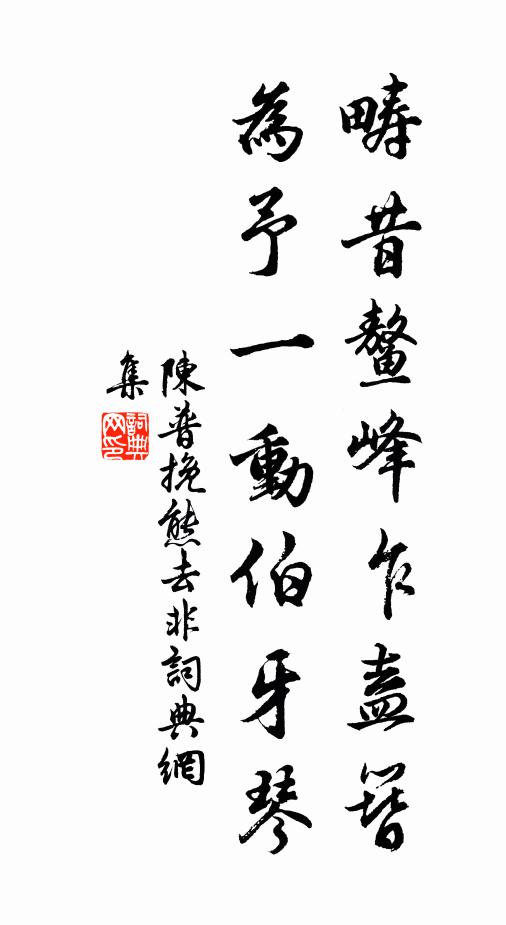 疇昔鰲峰乍盍簪
為予一動伯牙琴
陳普挽熊去非詞典網
集
詞典
网印